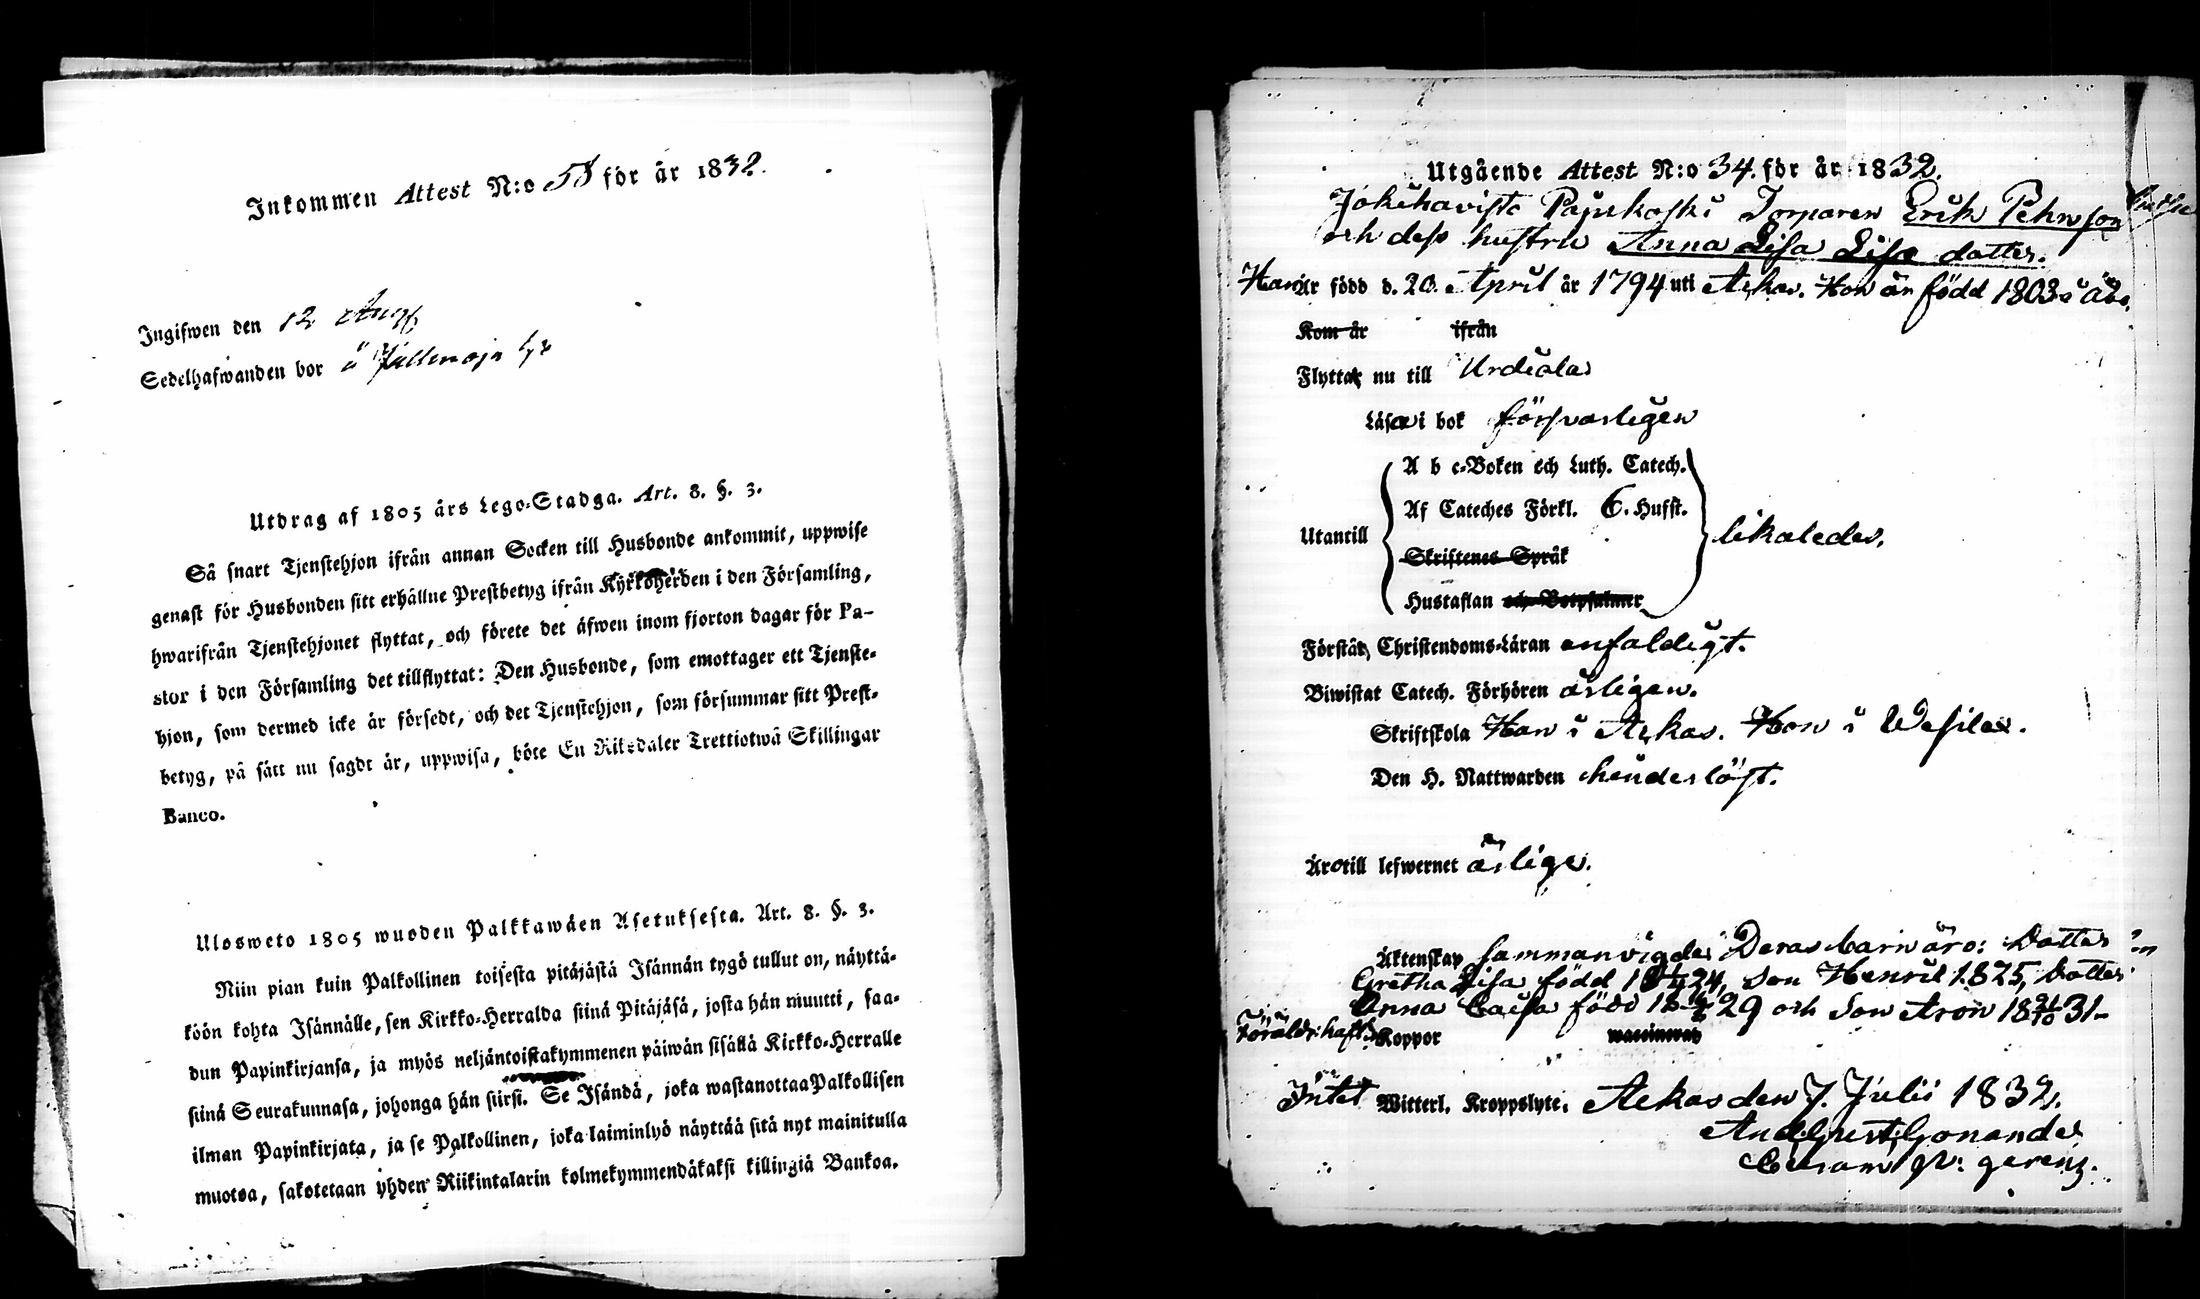 Inkommen Attest N:o 58 för år 1832.
Ingifwen den 12 Aug
Sedelhafwanden bor i
Utdrag af 1805 års Lego-Stadga. Art. 8. §. 3.
Så snart Tjenstehjon ifrån annan Socken till Husbonde ankommit, uppwise
genast för Husbonden sitt erhållne Prestbetyg ifrån Kyrkoherden i den Församling,
hwarifrån Tjenstehjonet flyttat, och förete det äfwen inom fjorton dagar för Pa-
stor i den Församling det tillflyttat: Den Husbonde, som emottager ett Tjenste-
hjon, som dermed icke är försedt, och det Tjenstehjon, som försummar sitt Prest-
betyg, på sätt nu sagdt är, uppwisa, böte En Riksdaler Trettiotwå Skillingar
Banco.
Ulosweto 1805 wuoden Palkkawäen Asetuksesta. Art. 8. §. 3.
Niin pian kuin Palkollinen toisesta pitäjästä Isännän tygö tullut on, näyttä-
köön kohta Isännälle, sen Kirkko-Herralda siinä Pitäjäsä, josta hän muutti, saa-
dun Papinkirjansa, ja myös neljäntoistakymmenen päiwän sisällä Kirkko-Herralle
siinä Seurakunnasa, johonga hän siirsi. Se Isändä, joka wastanottaa Palkollisen
ilman Papinkirjata, ja se Palkollinen, joka laiminlyö näyttää sitä nyt mainitulla
muotoa, sakotetaan yhden Riikintalarin kolmekymmendäkaksi killingiä Bankoa.
Utgående Attest N:o 34. för år 1832.
Jokihavisto Torparen Erik Pehrsson
och dess hustru Anna Lisa Lisæ dotter.
Han Är född d. 20. April år 1794 uti Ackas. Hon är född 1803 i
Kom år ifrån
Flytta nu till Urdiala
Läsa i bok försvarligen
A b c-Boken och Luth. Catech.
Af Cateches Förkl. 6. Hufst.
Utantill likaledes.
Skriftenes Språk
Hustaflan och Botpsalmer
Förstå Christendoms-Läran enfaldigt.
Biwistat Catech. Förhören årligen.
Skriftskola Han i Ackas. Hon i Wesilax.
Den H. Nattwarden hinderlöst.
Äro till lefwernet ärlige.
Äktenskap sammanvigde. Deras barn äro: Dotter
Gretha Lisa född 1824, Son Henric 1825, Dotter
Anna Caisa född 1829 och Son Aron 18 31
Koppor
Intet Witterl. Kroppslyte. Ackas den 7. Julii 1832.